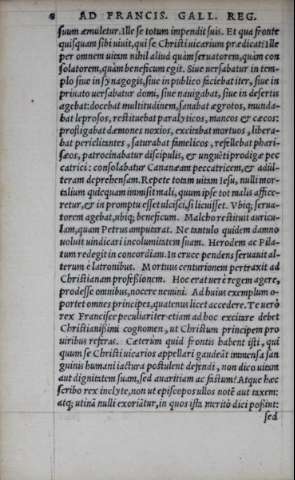 6 AD FRANCIS. GALL. REG.
suum æmuletur. Ille se totum impendit suis. Et qua fronte
quisquam sibi uiuit, qui se Christi uicarium prædicat? Ille
per omnem uitam nihil aliud quàm seruatorem, quàm con
solatorem, quàm beneficum egit. Siue uersabatur in tem-
plo siue in synagogis, siue in publico faciebat iter, siue in
priuato uersabatur domi, siue nauigabat, siue in desertis
agebat: docebat multitudinem, sanabat ægrotos, munda-
bat leprosos, restituebat paralyticos, mancos & cæcos:
profligabat dæmones noxios, excitabat mortuos, libera-
bat periclitantes, saturabat famelicos, refellebat phari-
sæos, patrocinabatur discipulis, & unguēti prodigæ pec
catrici: consolabatur Cananæam peccatricem, & adul-
teram deprehensam. Repete totam uitam Iesu, nulli mor-
talium quicquam immisit mali, quum ipse tot malis affice-
retur, & in promptu esset ulcisci, si licuisset. Vbiq; serua-
torem agebat, ubiq; beneficum. Malcho restituit auricu-
lam, quam Petrus amputarat. Ne tantulo quidem damno
uoluit uindicari incolumitatem suam. Herodem ac Pila-
tum redegit in concordiam. In cruce pendens seruauit al-
terum è latronibus. Mortuus centurionem pertraxit ad
Christianam professionem. Hoc erat uerè regem agere,
prodesse omnibus, nocere nemini. Ad huius exemplum o-
portet omnes principes, quatenus licet accedere. Te uerò
rex Francisce peculiariter etiam ad hoc excitare debet
Christianissimi cognomen, ut Christum principem pro
uiribus referas. Cæterum quid frontis habent isti, qui
quum se Christi uicarios appellari gaudeāt immensa san
guinis humani iactura postulent defendi, non dico uitam
aut dignitatem suam, sed auaritiam ac fastum? Atque hæc
scribo rex inclyte, non ut episcopos ullos notē aut taxem:
atq; utinā nulli exoriātur, in quos ista meritò dici possint:
sed